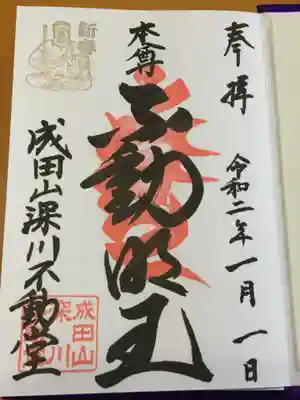 奉拝
令和二年一月一日
本尊
不動明王
成田山深川不動堂
成田山
深川